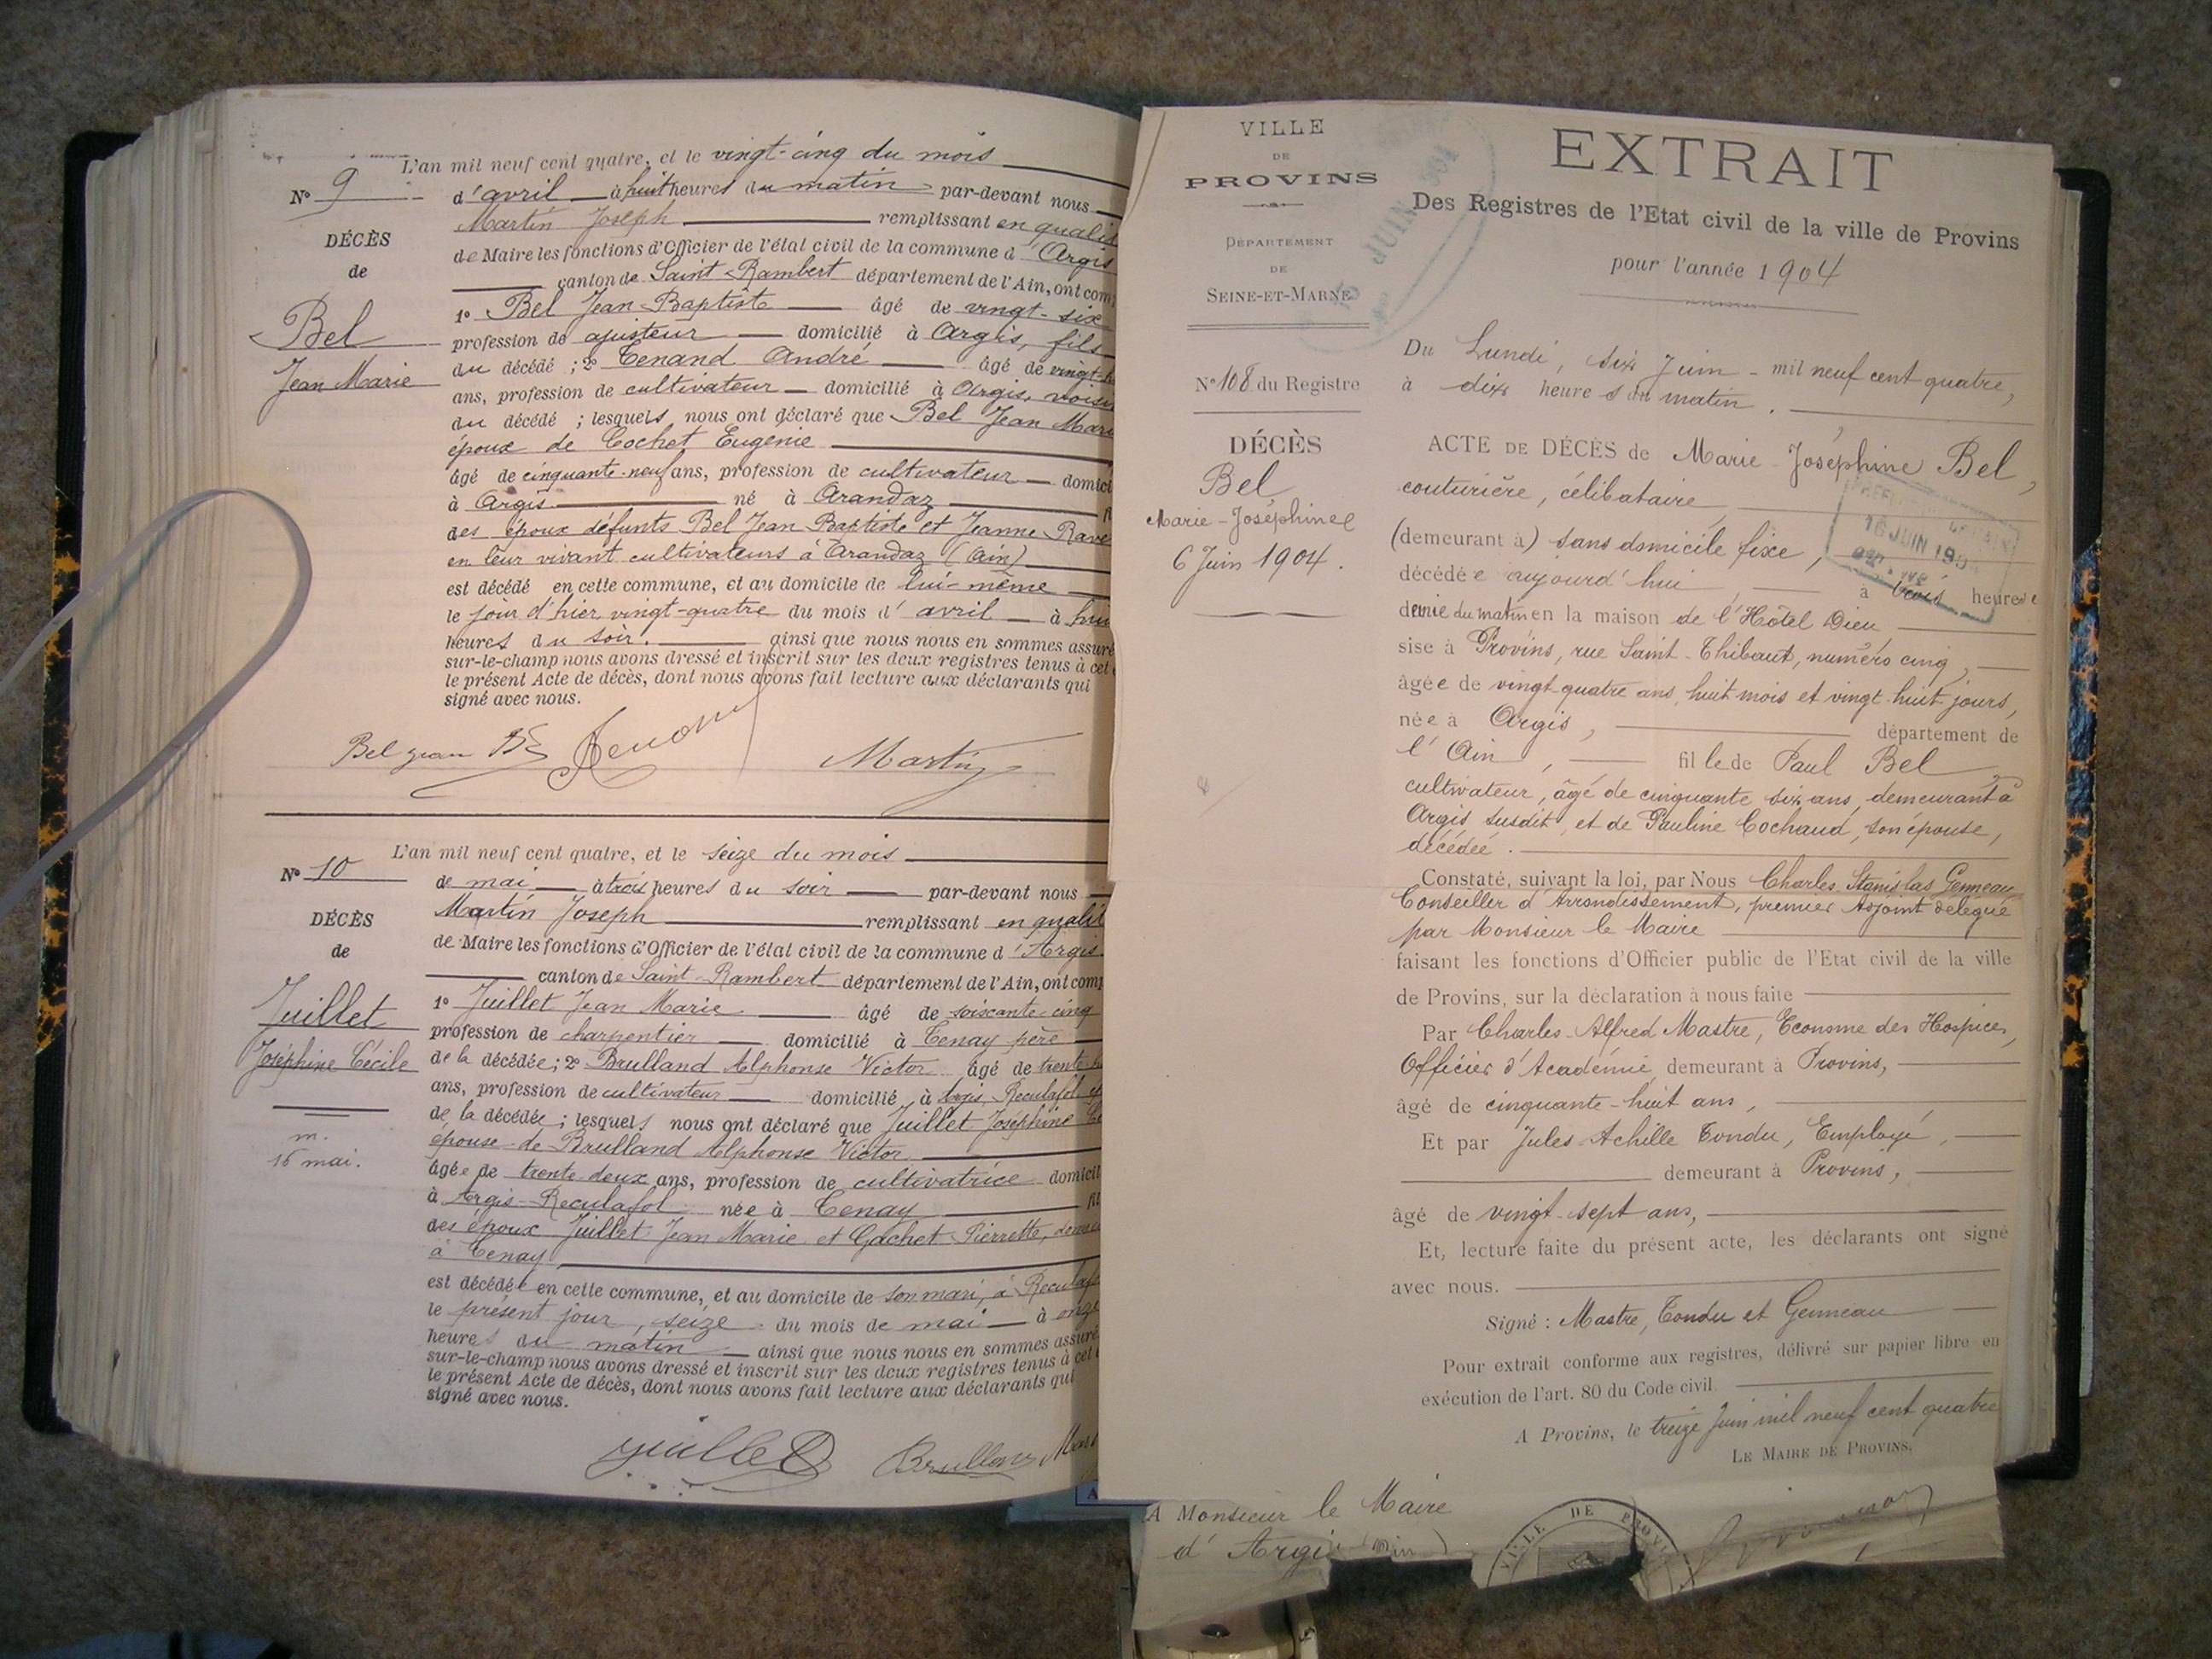 L'an mil neuf cent quatre, et le vingt-cinq du mois
N° 9
d'avril à huit heures du matin par-devant nous
Martin Joseph remplissant en qualit
DÉCÈS
de Maire les fonctions d'Officier de l'état civil de la commune d'Argis
de
canton de Saint-Rambert département de l'Ain, ont com
1° Bel Jean-Baptiste âgé de vingt-six
Bel
profession de ajusteur domicilié à Argis, fils
du décédé ; 2° Tenand André âgé de vingt
Jean Marie
ans, profession de cultivateur domicilié à Argis, voisin
du décédé ; lesquels nous ont déclaré que Bel Jean Mari
époux de Cochet Eugenie
âgé de cinquante-neuf ans, profession de cultivateur domici
à Argis né à Arandaz
des époux défunts Bel Jean Baptiste et Jeanne Rave
en leur vivant cultivateurs à Arandaz (Ain)
est décédé en cette commune, et au domicile de lui-même
le jour d'hier vingt-quatre du mois d'avril à hui
heures du soir. ainsi que nous nous en sommes assuré
sur-le-champ nous avons dressé et inscrit sur les deux registres tenus à cet
le présent Acte de décès, dont nous avons fait lecture aux déclarants qui
signé avec nous.
Bel jean Bte Tenand Martin
L'an mil neuf cent quatre, et le seize du mois
N° 10
de mai à trois heures du soir par-devant nous
Martin Joseph remplissant en qualit
DÉCÈS
de Maire les fonctions d'Officier de l'état civil de la commune d'Argis
de
canton de Saint-Rambert département de l'Ain, ont comp
Juillet
1° Juillet Jean Marie âgé de soixante-cinq
profession de charpentier domicilié à Tenay père
Joséphine Cécile
de la décédée ; 2° Brulland Alphonse Victor âgé de trente
ans, profession de cultivateur domicilié à Argis, Reculafol
de la décédée ; lesquels nous ont déclaré que Juillet Joséphine
m.
épouse de Brulland Alphonse Victor
16 mai.
âgée de trente-deux ans, profession de cultivatrice domicil
à Argis-Reculafol née à Tenay fil
des époux Juillet Jean Marie et Gachet Pierrette, demeu
à Tenay
est décédée en cette commune, et au domicile de son mari, à Reculaf
le présent jour, seize du mois de mai à onze
heures du matin ainsi que nous nous en sommes assuré
sur-le-champ nous avons dressé et inscrit sur les deux registres tenus à cet
le présent Acte de décès, dont nous avons fait lecture aux déclarants qui
signé avec nous.
Juillet Brulland Mar
VILLE
DE
PROVINS
DÉPARTEMENT
DE
SEINE-ET-MARNE
N° 108 du Registre
DÉCÈS
Bel
Marie-Joséphine
6 Juin 1904.
JUIN
EXTRAIT
Des Registres de l'Etat civil de la ville de Provins
pour l'année 1904
Du Lundi, six Juin mil neuf cent quatre,
à dix heures du matin.
ACTE DE DÉCÈS de Marie-Joséphine Bel,
couturière, célibataire,
16 JUIN 190
(demeurant à) sans domicile fixe,
décédée aujourd'hui, à trois heures
demie du matin en la maison de l'Hôtel Dieu
sise à Provins, rue Saint-Thibaut, numéro cinq,
âgée de vingt-quatre ans, huit mois et vingt-huit jours,
née à Argis, département de
l'Ain, fille de Paul Bel
cultivateur, âgé de cinquante six ans, demeurant à
Argis susdit, et de Pauline Cochaud, son épouse,
décédée.
Constaté, suivant la loi, par Nous Charles Stanislas Genneau
Conseiller d'Arrondissement, premier Adjoint délégué
par Monsieur le Maire
faisant les fonctions d'Officier public de l'Etat civil de la ville
de Provins, sur la déclaration à nous faite
Par Charles-Alfred Mastre, Econome des Hospices,
Officier d'Académie, demeurant à Provins,
âgé de cinquante-huit ans,
Et par Jules Achille Tondu, Employé,
demeurant à Provins,
âgé de vingt-sept ans,
Et, lecture faite du présent acte, les déclarants ont signé
avec nous.
Signé : Mastre, Tondu et Genneau
Pour extrait conforme aux registres, délivré sur papier libre en
exécution de l'art. 80 du Code civil.
A Provins, le treize Juin mil neuf cent quatre
LE MAIRE DE PROVINS,
A Monsieur le Maire
d'Argis (Ain)
VILLE DE PROV